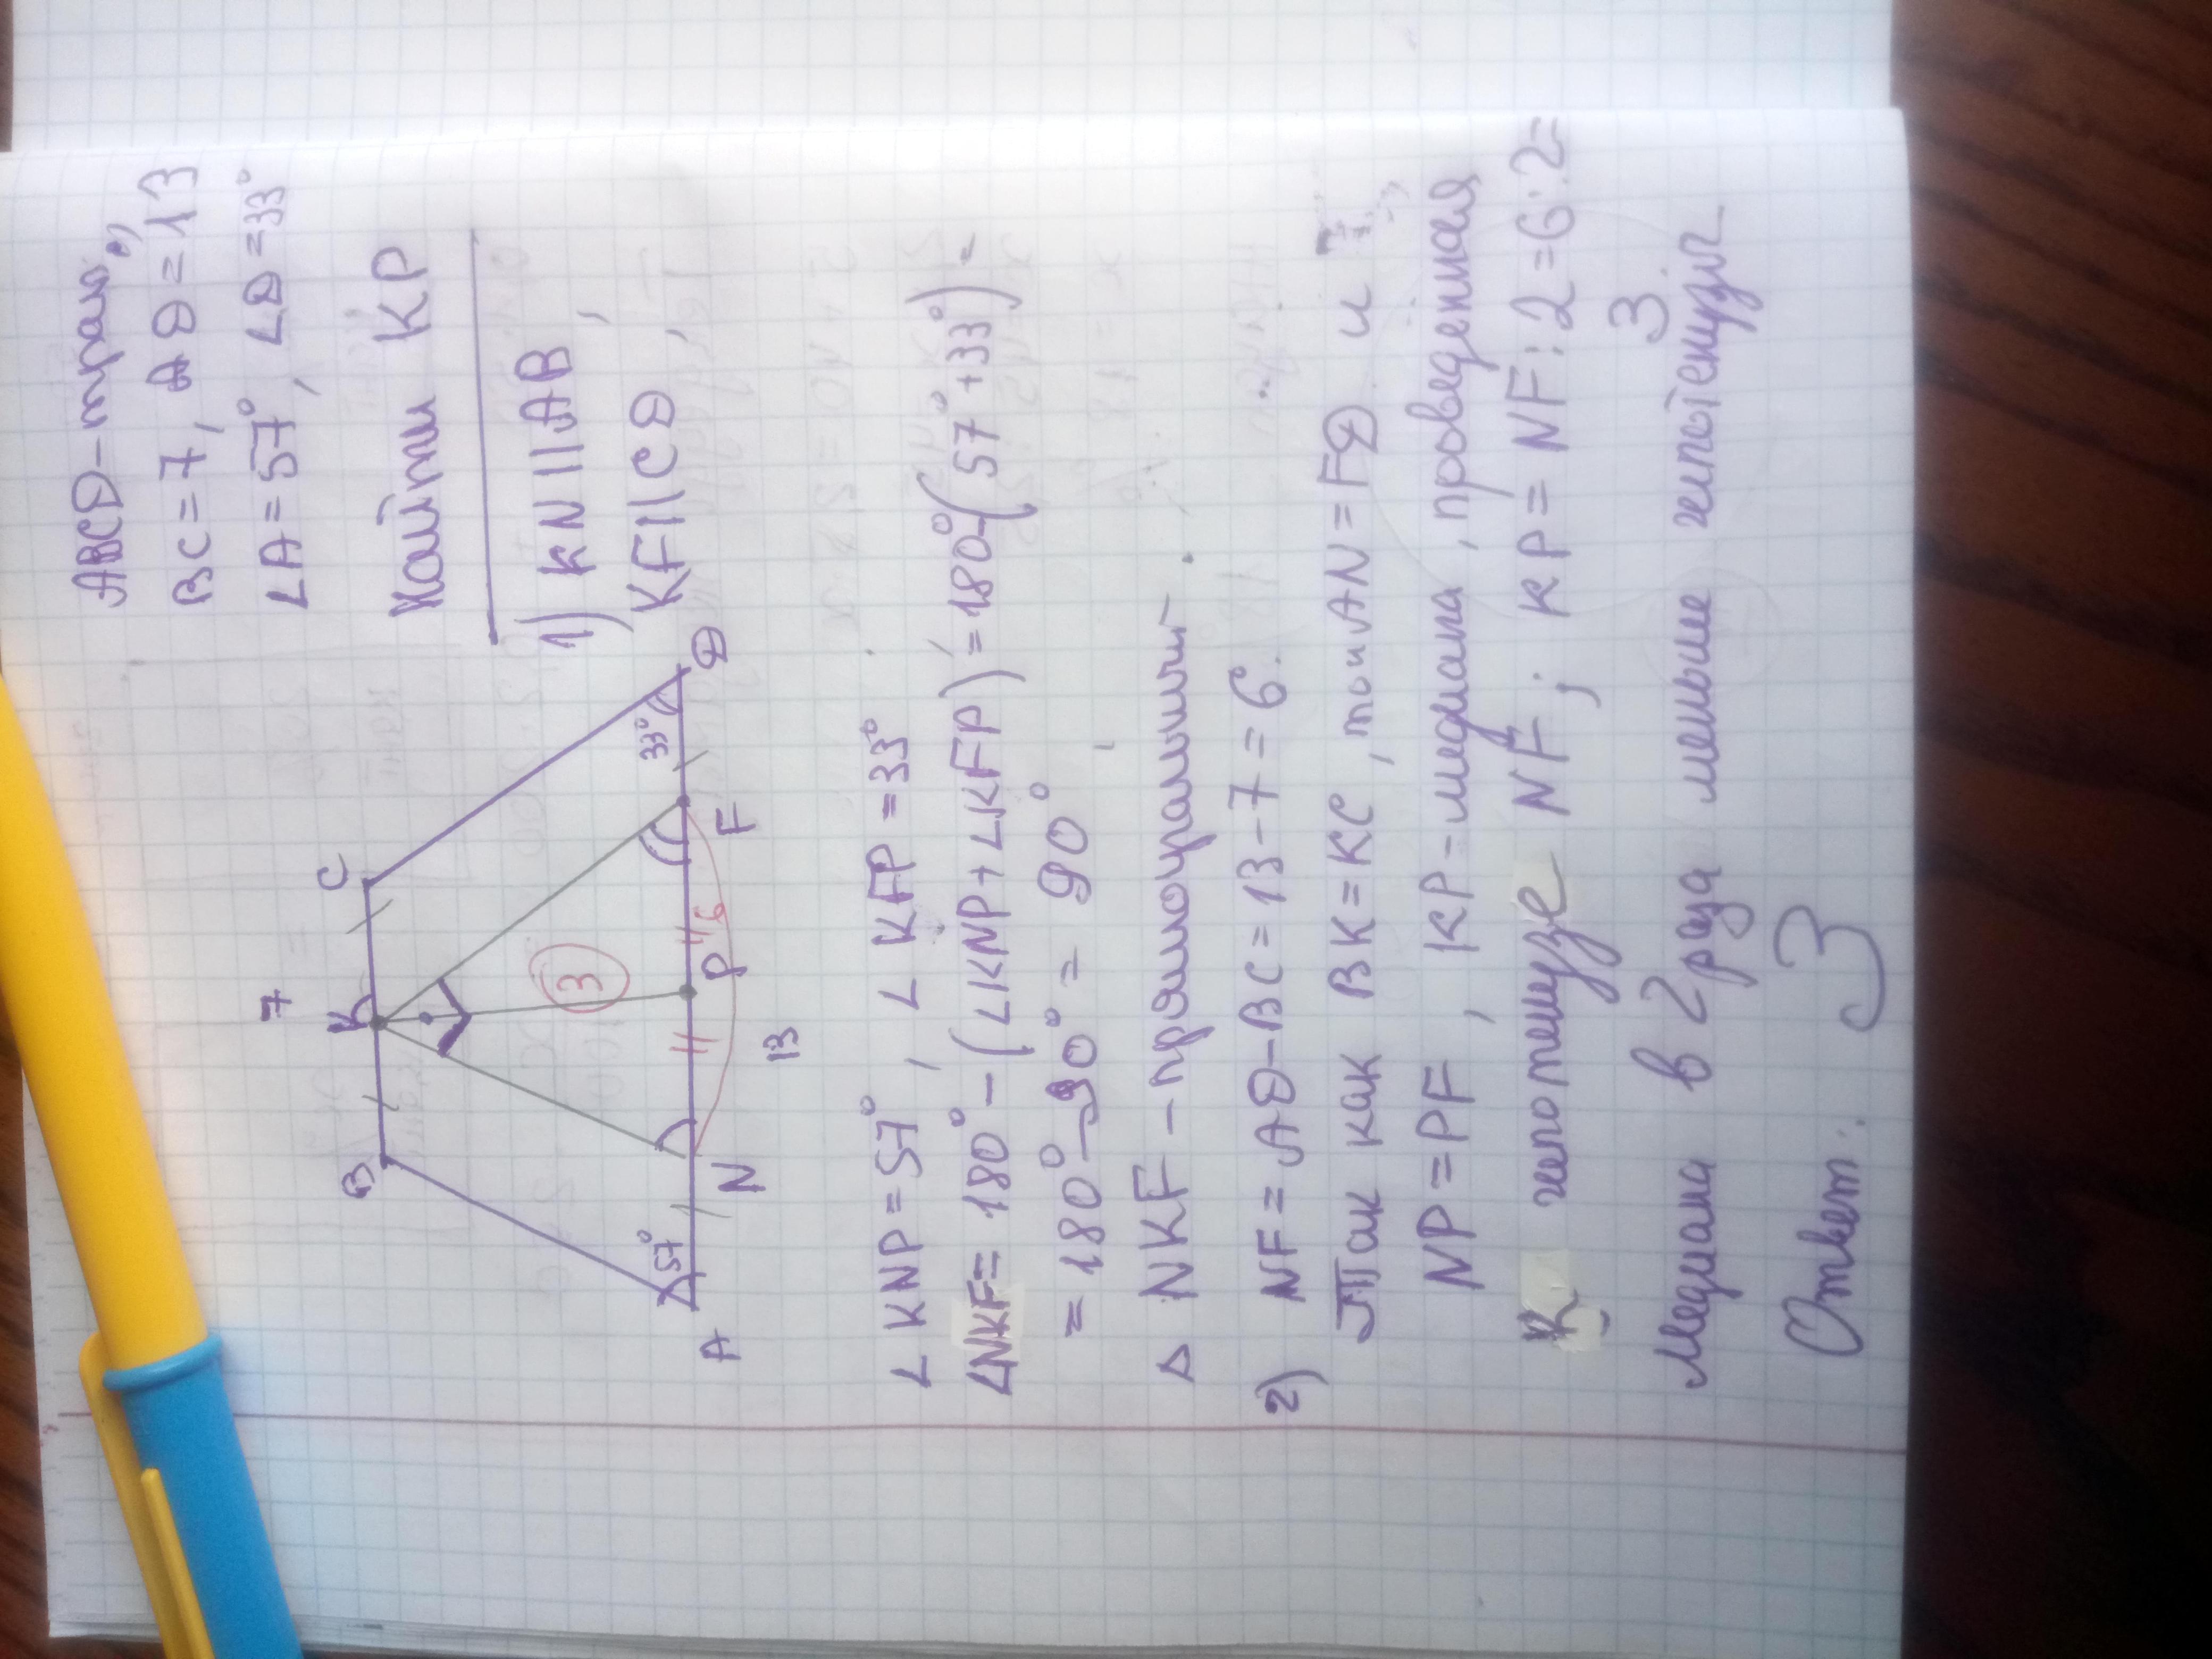 ABCD-трап,
BC=7, AD=13
∠A=57°, ∠D=33°
Найти KP
1) KN||AB,
KF||CD,
B
7
K
C
57°
3
33°
6
A
N
P
F
D
13
∠KNP=57°, ∠KFP=33°
∠NKF=180°-(∠KNP+∠KFP)=180°-(57°+33°)=
=180°-90°=90°
△ NKF-прямоугольный.
2) NF=AD-BC=13-7=6.
Так как BK=KC, то и AN=FD и
NP=PF, KP-медиана, проведенная
К гипотенузе NF; KP=NF:2=6:2=
3
Медиана в 2 раза меньше гипотенузы
Ответ: 3